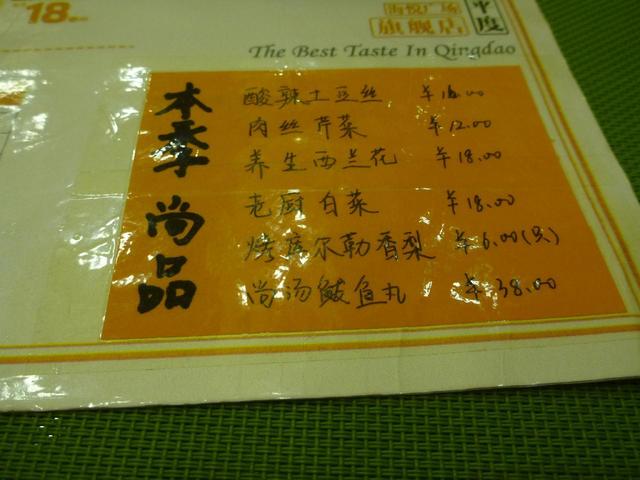 18
海悦广场
旗舰店
平度
The Best Taste In Qingdao
本季尚品
酸辣土豆丝 ¥16.00
肉丝芹菜 ¥12.00
养生西兰花 ¥18.00
老厨白菜 ¥18.00
烤库尔勒香梨 ¥6.00(只)
尚汤鲅鱼丸 ¥38.00